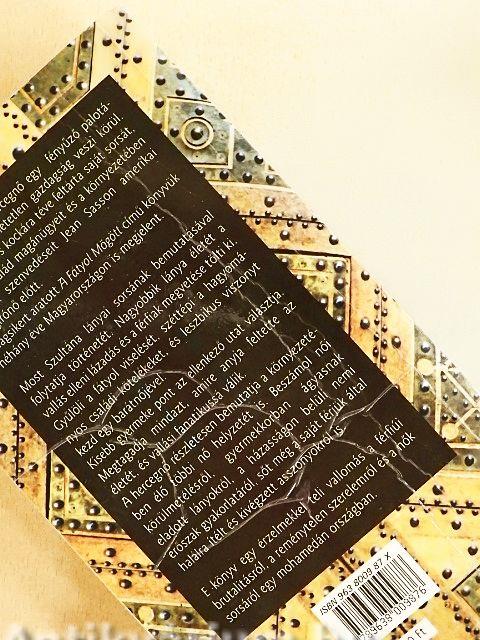 hercegnő egy fényűző palotá-
etlen gazdagság veszi körül.
s kockára téve feltárta saját sorsát,
lád magánügyeit és a környezetében
szenvedéseit Jean Sasson amerikai
írónő előtt.
agsikert aratott A Fátyol Mögött című könyvük
néhány éve Magyarországon is megjelent.
Most Szultána lányai sorsának bemutatásával
folytatja történetét. Nagyobbik lánya életét a
vallás elleni lázadás és a férfiak megvetése tölti ki.
Gyűlöli a fátyol viselését, széttépi a hagyomá-
nyos családi kötelékeket, és leszbikus viszonyt
kezd egy barátnőjével.
Kisebb gyermeke pont az ellenkező utat választja.
Megtagadja mindazt, amire anyja feltette az
életét, és vallási fanatikussá válik.
A hercegnő részletesen bemutatja a környezeté-
ben élő többi nő helyzetét is. Beszámol női
körülmetélésről, gyermekkorban ágyasnak
eladott lányokról, a házasságon belüli nemi
erőszak gyakorlatáról, sőt még a saját férjük által
halálra ítélt és kivégzett asszonyokról is.
E könyv egy érzelmekkel teli vallomás a férfiúi
brutalitásról, a reménytelen szerelemről és a nők
sorsáról egy mohamedán országban.
ISBN 963 8009 87 X
789638 009876
0 Ft